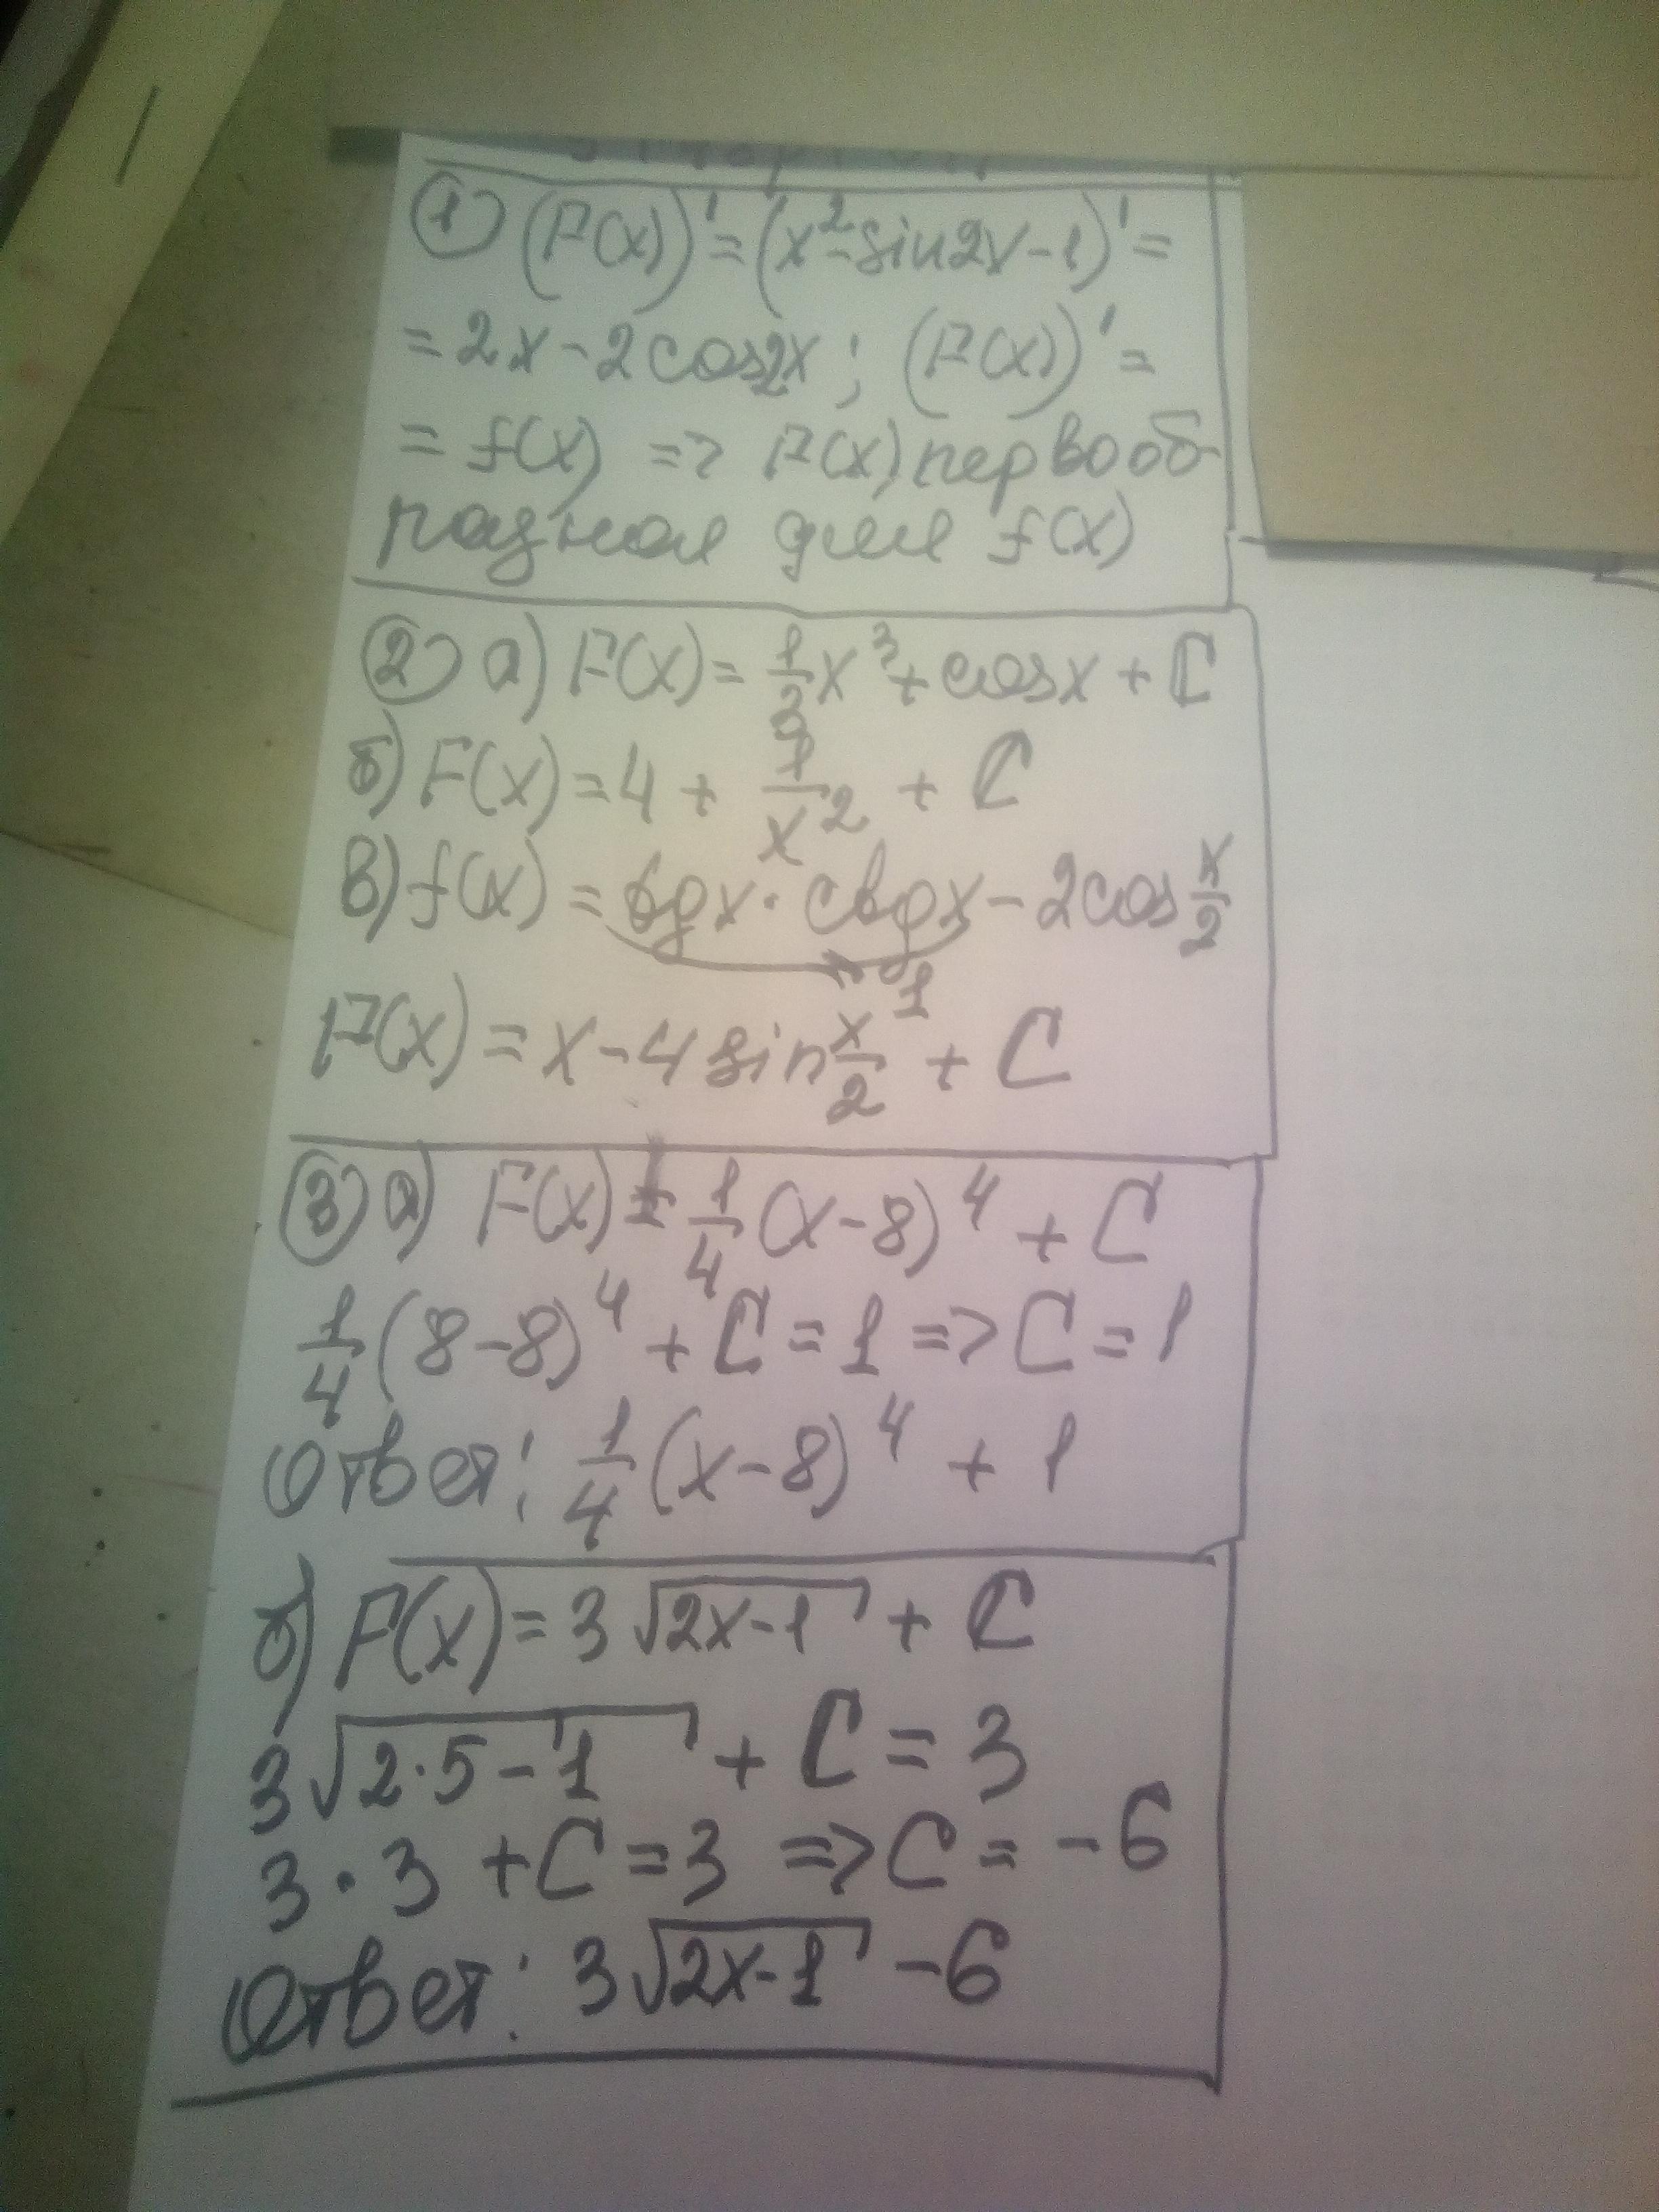 ① (F(x))' = (x² - sin2x - 1)' =
= 2x - 2cos2x ; (F(x))' =
= f(x) => F(x) первооб-
разная для f(x)
② а) F(x) = 1/3 x³ + cosx + C
б) F(x) = 4 + 1/x² + C
в) f(x) = tgx · ctgx - 2cos x/2
1
F(x) = x - 4 sin x/2 + C
③ а) F(x) = 1/4 (x-8)⁴ + C
1/4 (8-8)⁴ + C = 1 => C = 1
Ответ: 1/4 (x-8)⁴ + 1
б) F(x) = 3 √(2x-1) + C
3√(2·5-1) + C = 3
3·3 + C = 3 => C = -6
Ответ: 3√(2x-1) - 6